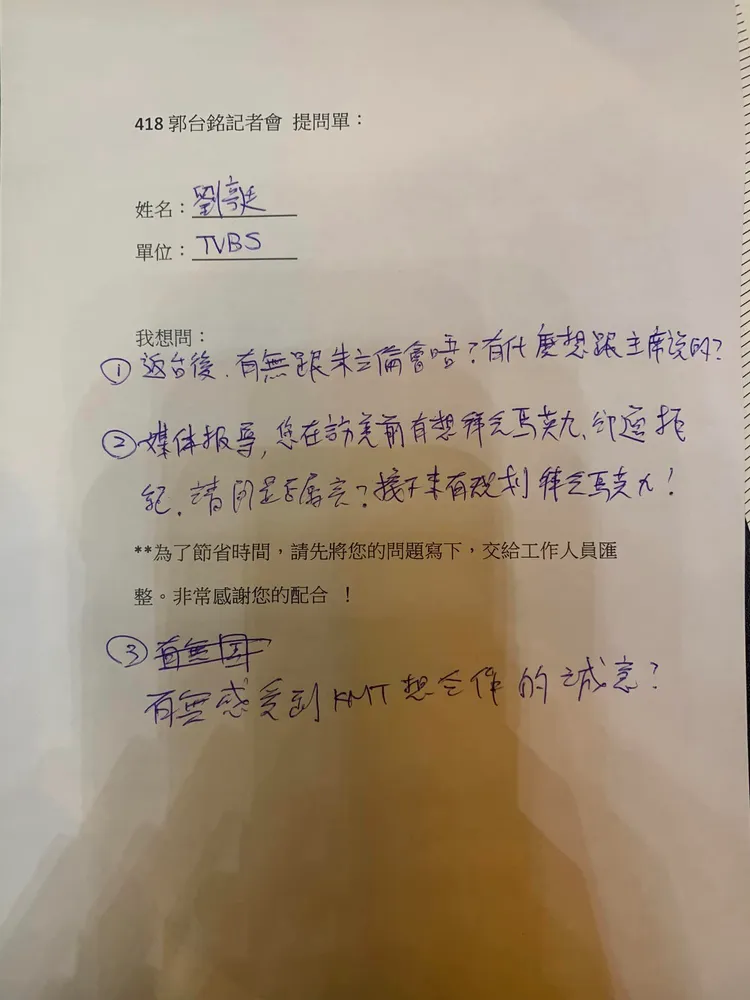 418 郭台銘記者會 提問單：
姓名：劉亭廷
單位：TVBS
我想問：
① 返台後，有無跟朱立倫會晤？有什麼想跟主席說的？
② 媒体报导，您在訪美前有想拜會馬英九，卻遭拒
絕，請問是否屬实？接下來有規划拜会馬英九！
**為了節省時間，請先將您的問題寫下，交給工作人員匯
整。非常感謝您的配合 ！
③ 有無
有無感受到KMT想合作的誠意？